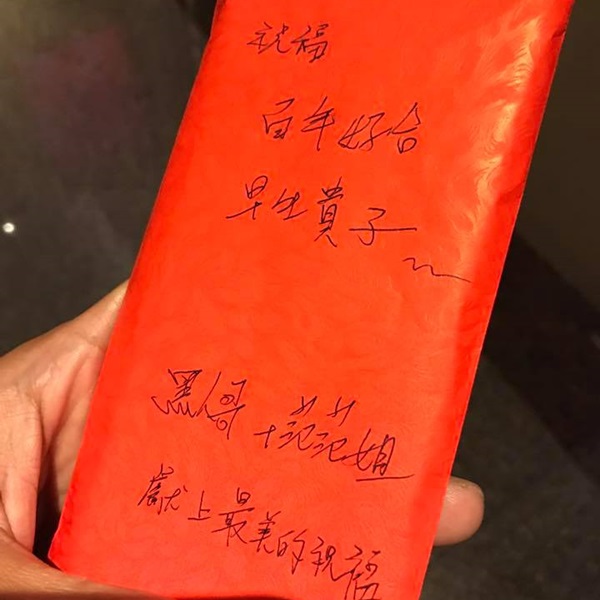 祝福
百年好合
早生貴子~
黑哥+范范姐
獻上最美的祝福